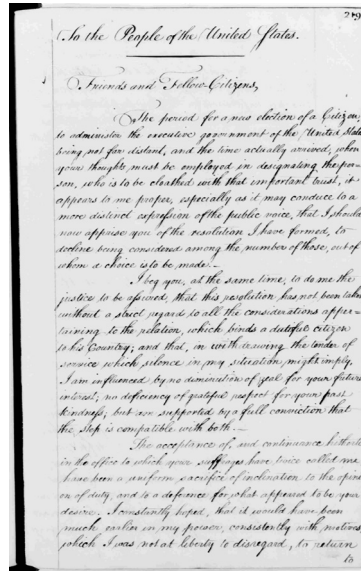 249
To the People of the United States.
Friends and Fellow-Citizens,
The period for a new election of a Citizen,
to administer the executive government of the United States
being not far distant, and the time actually arrived, when
your thoughts must be employed in designating the per=
son, who is to be cloathed with that important trust, it
appears to me proper, especially as it may conduce to a
more distinct expression of the public voice, that I should
now apprise you of the resolution I have formed, to
decline being considered among the number of those, out of
whom a choice is to be made.
I beg you, at the same time, to do me the
justice to be assured, that this resolution has not been taken
without a strict regard to all the considerations apper=
taining to the relation, which binds a dutiful citizen
to his Country; and that, in withdrawing the tender of
service which silence in my situation might imply,
I am influenced by no diminution of zeal for your future
interest; no deficiency of grateful respect for your past
kindness; but am supported by a full conviction that
the step is compatible with both.—
The acceptance of, and continuance hitherto
in the office to which your suffrages have twice called me
have been a uniform sacrifice of inclination to the opini
on of duty, and to a deference for what appeared to be your
desire. I constantly hoped, that it would have been
much earlier in my power, consistently with motives,
which I was not at liberty to disregard, to return
to